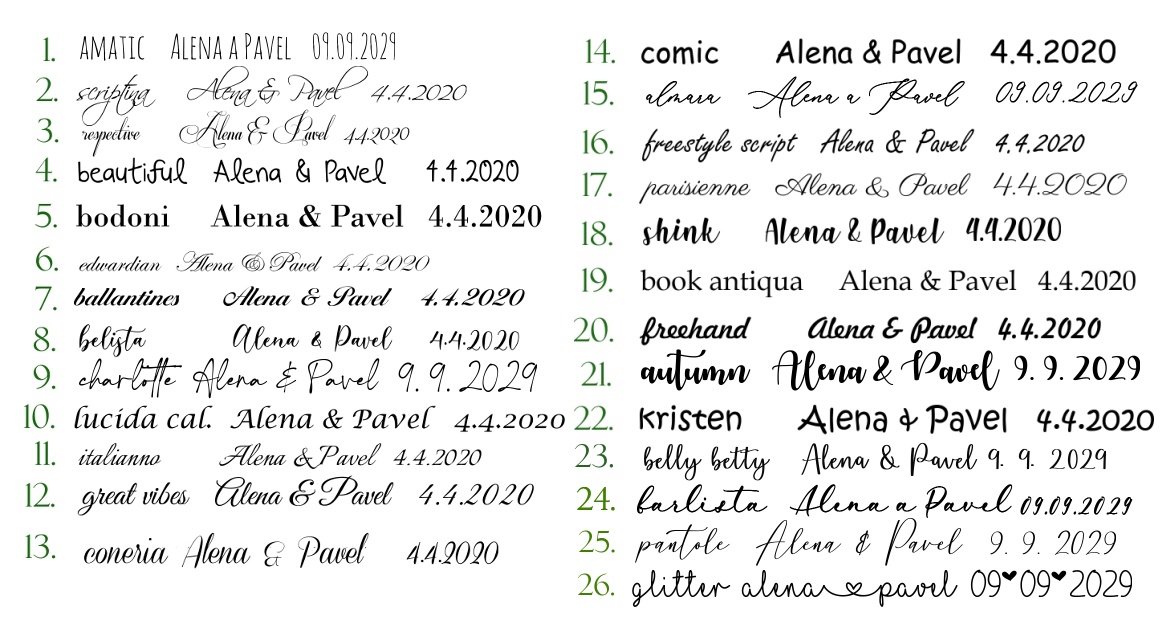 1. AMATIC ALENA A PAVEL 09.09.2029
2. scriptina Alena & Pavel 4.4.2020
3. respective Alena & Pavel 4.4.2020
4. beautiful Alena & Pavel 4.4.2020
5. bodoni Alena & Pavel 4.4.2020
6. edwardian Alena & Pavel 4.4.2020
7. ballantines Alena & Pavel 4.4.2020
8. belista Alena & Pavel 4.4.2020
9. charlotte Alena & Pavel 9. 9. 2029
10. lucida cal. Alena & Pavel 4.4.2020
11. italianno Alena & Pavel 4.4.2020
12. great vibes Alena & Pavel 4.4.2020
13. coneria Alena & Pavel 4.4.2020
14. comic Alena & Pavel 4.4.2020
15. almara Alena a Pavel 09.09.2029
16. freestyle script Alena & Pavel 4.4.2020
17. parisienne Alena & Pavel 4.4.2020
18. shink Alena & Pavel 4.4.2020
19. book antiqua Alena & Pavel 4.4.2020
20. freehand Alena & Pavel 4.4.2020
21. autumn Alena & Pavel 9. 9. 2029
22. kristen Alena & Pavel 4.4.2020
23. belly betty Alena & Pavel 9. 9. 2029
24. barlista Alena a Pavel 09.09.2029
25. pantole Alena & Pavel 9. 9. 2029
26. glitter alena♥pavel 09♥09♥2029